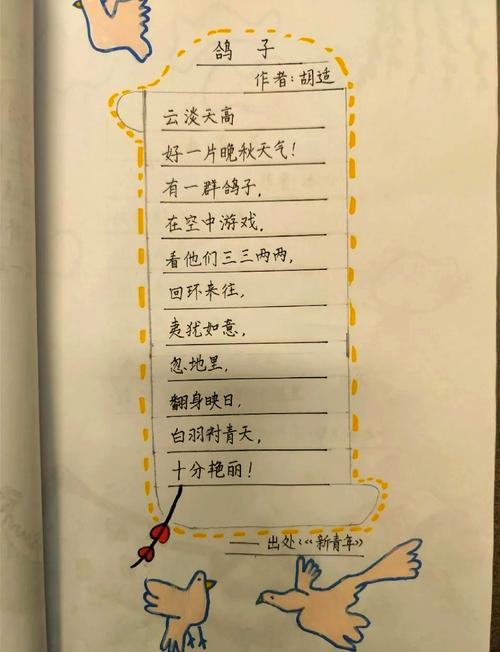 鸽 子
作者:胡适
云淡天高
好一片晚秋天气!
有一群鸽子,
在空中游戏,
看他们三三两两,
回环来往,
夷犹如意,
忽地里,
翻身映日,
白羽衬青天,
十分艳丽!
—— 出处:《新青年》